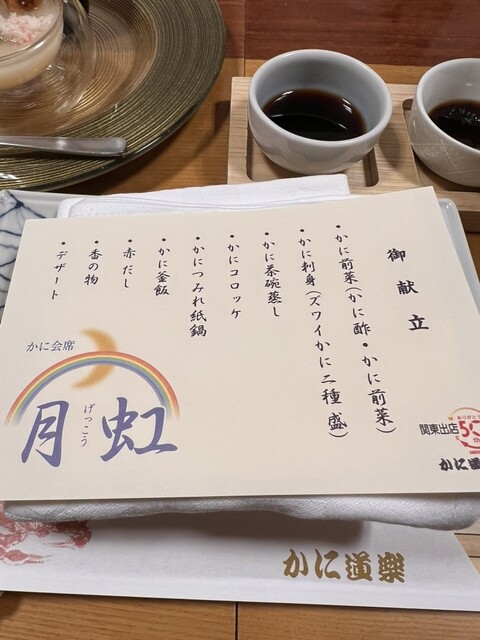 御献立
・かに前菜(かに酢・かに前菜)
・かに刺身(ズワイかに二種盛)
・かに茶碗蒸し
・かにコロッケ
・かにつみれ紙鍋
・かに釜飯
・赤だし
・香の物
・デザート
かに会席
げっこう
月虹
ありがとう
関東出店
かに道
かに道樂